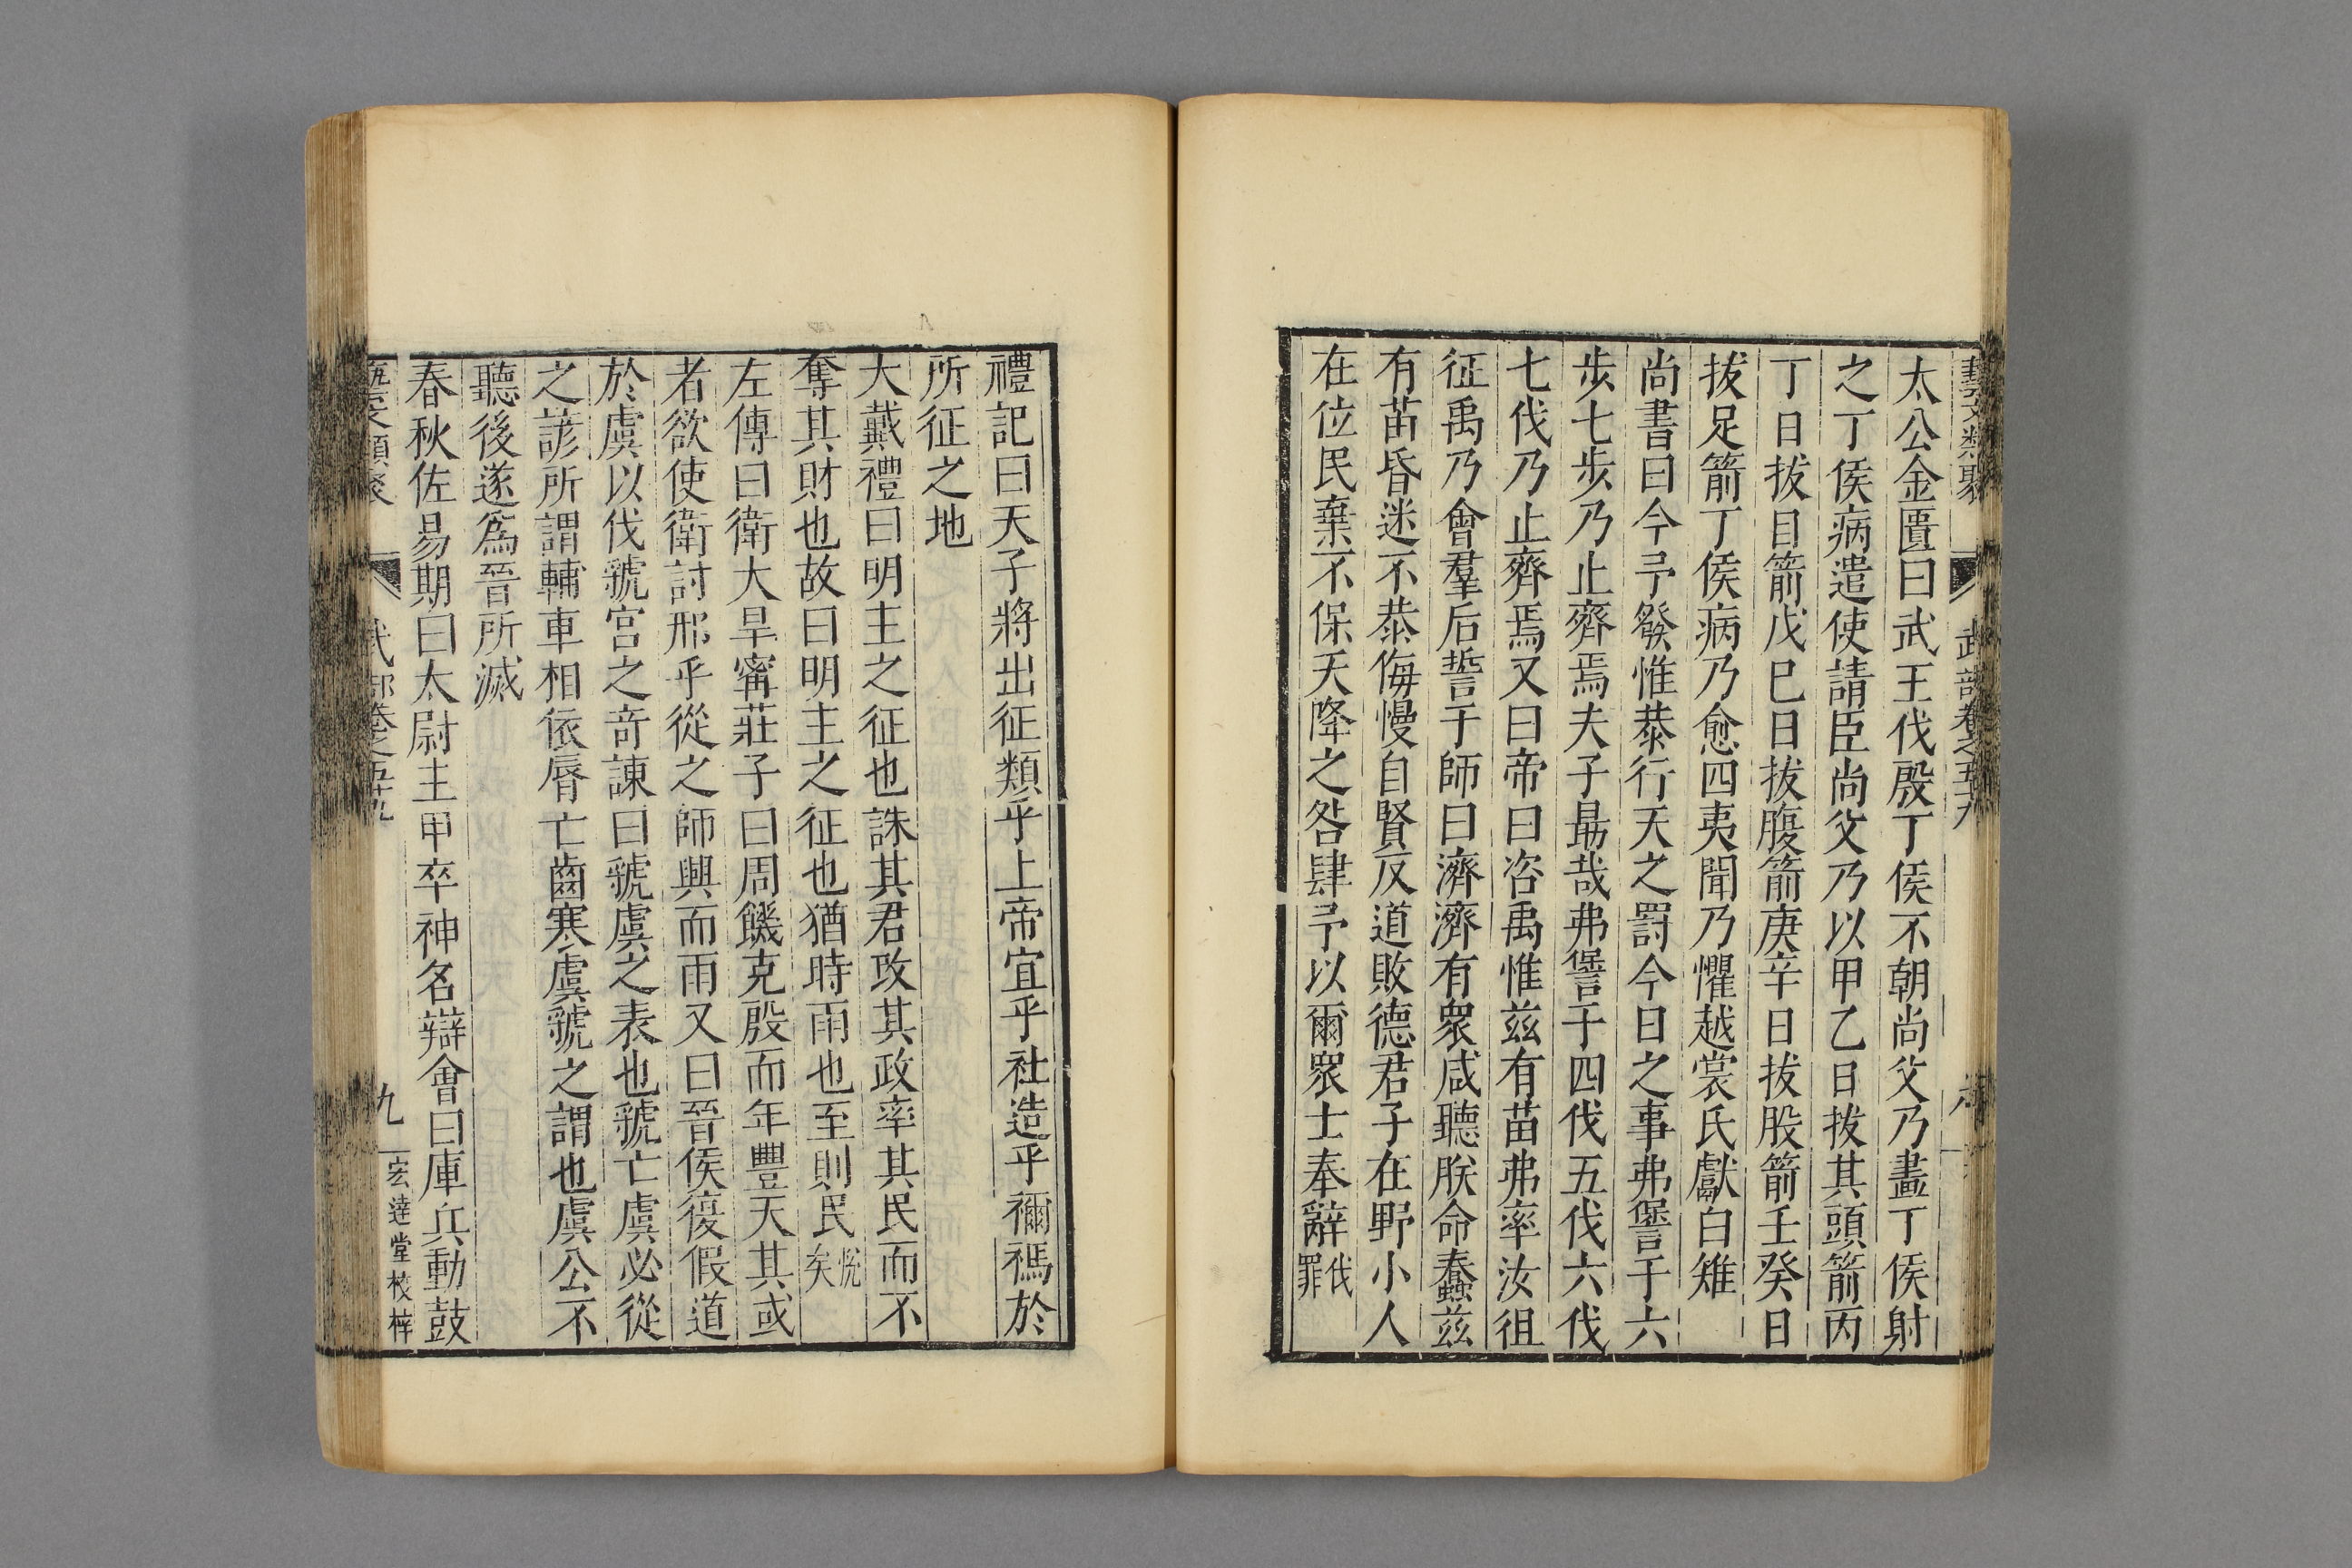 藝文類聚 武部卷之五十九 八
太公金匱曰武王伐殷丁侯不朝尚父乃畫丁侯射
之丁侯病遣使請臣尚父乃以甲乙日拔其頭箭丙
丁日拔目箭戊巳日拔腹箭庚辛日拔股箭壬癸日
拔足箭丁侯病乃愈四夷聞乃懼越裳氏獻白雉
尚書曰今予發惟恭行天之罰今日之事弗諐于六
步七步乃止齊焉夫子勗哉弗諐于四伐五伐六伐
七伐乃止齊焉又曰帝曰咨禹惟兹有苗弗率汝徂
征禹乃會羣后誓于師曰濟濟有衆咸聽朕命蠢兹
有苗昏迷不恭侮慢自賢反道敗德君子在野小人
在位民棄不保天降之咎肆予以爾衆士奉辭伐罪
禮記曰天子將出征類乎上帝宜乎社造乎禰禡於
所征之地
大戴禮曰明主之征也誅其君改其政率其民而不
奪其財也故曰明主之征也猶時雨也至則民悅矣
左傳曰衛大旱甯莊子曰周饑克殷而年豐天其或
者欲使衛討邢乎從之師興而雨又曰晉侯復假道
於虞以伐虢宮之奇諫曰虢虞之表也虢亡虞必從
之諺所謂輔車相依脣亡齒寒虞虢之謂也虞公不
聽後遂為晉所滅
春秋佐易期曰太尉主甲卒神名辯會曰庫兵動鼓
藝文類聚 武部卷之五十九 九 宏達堂校梓